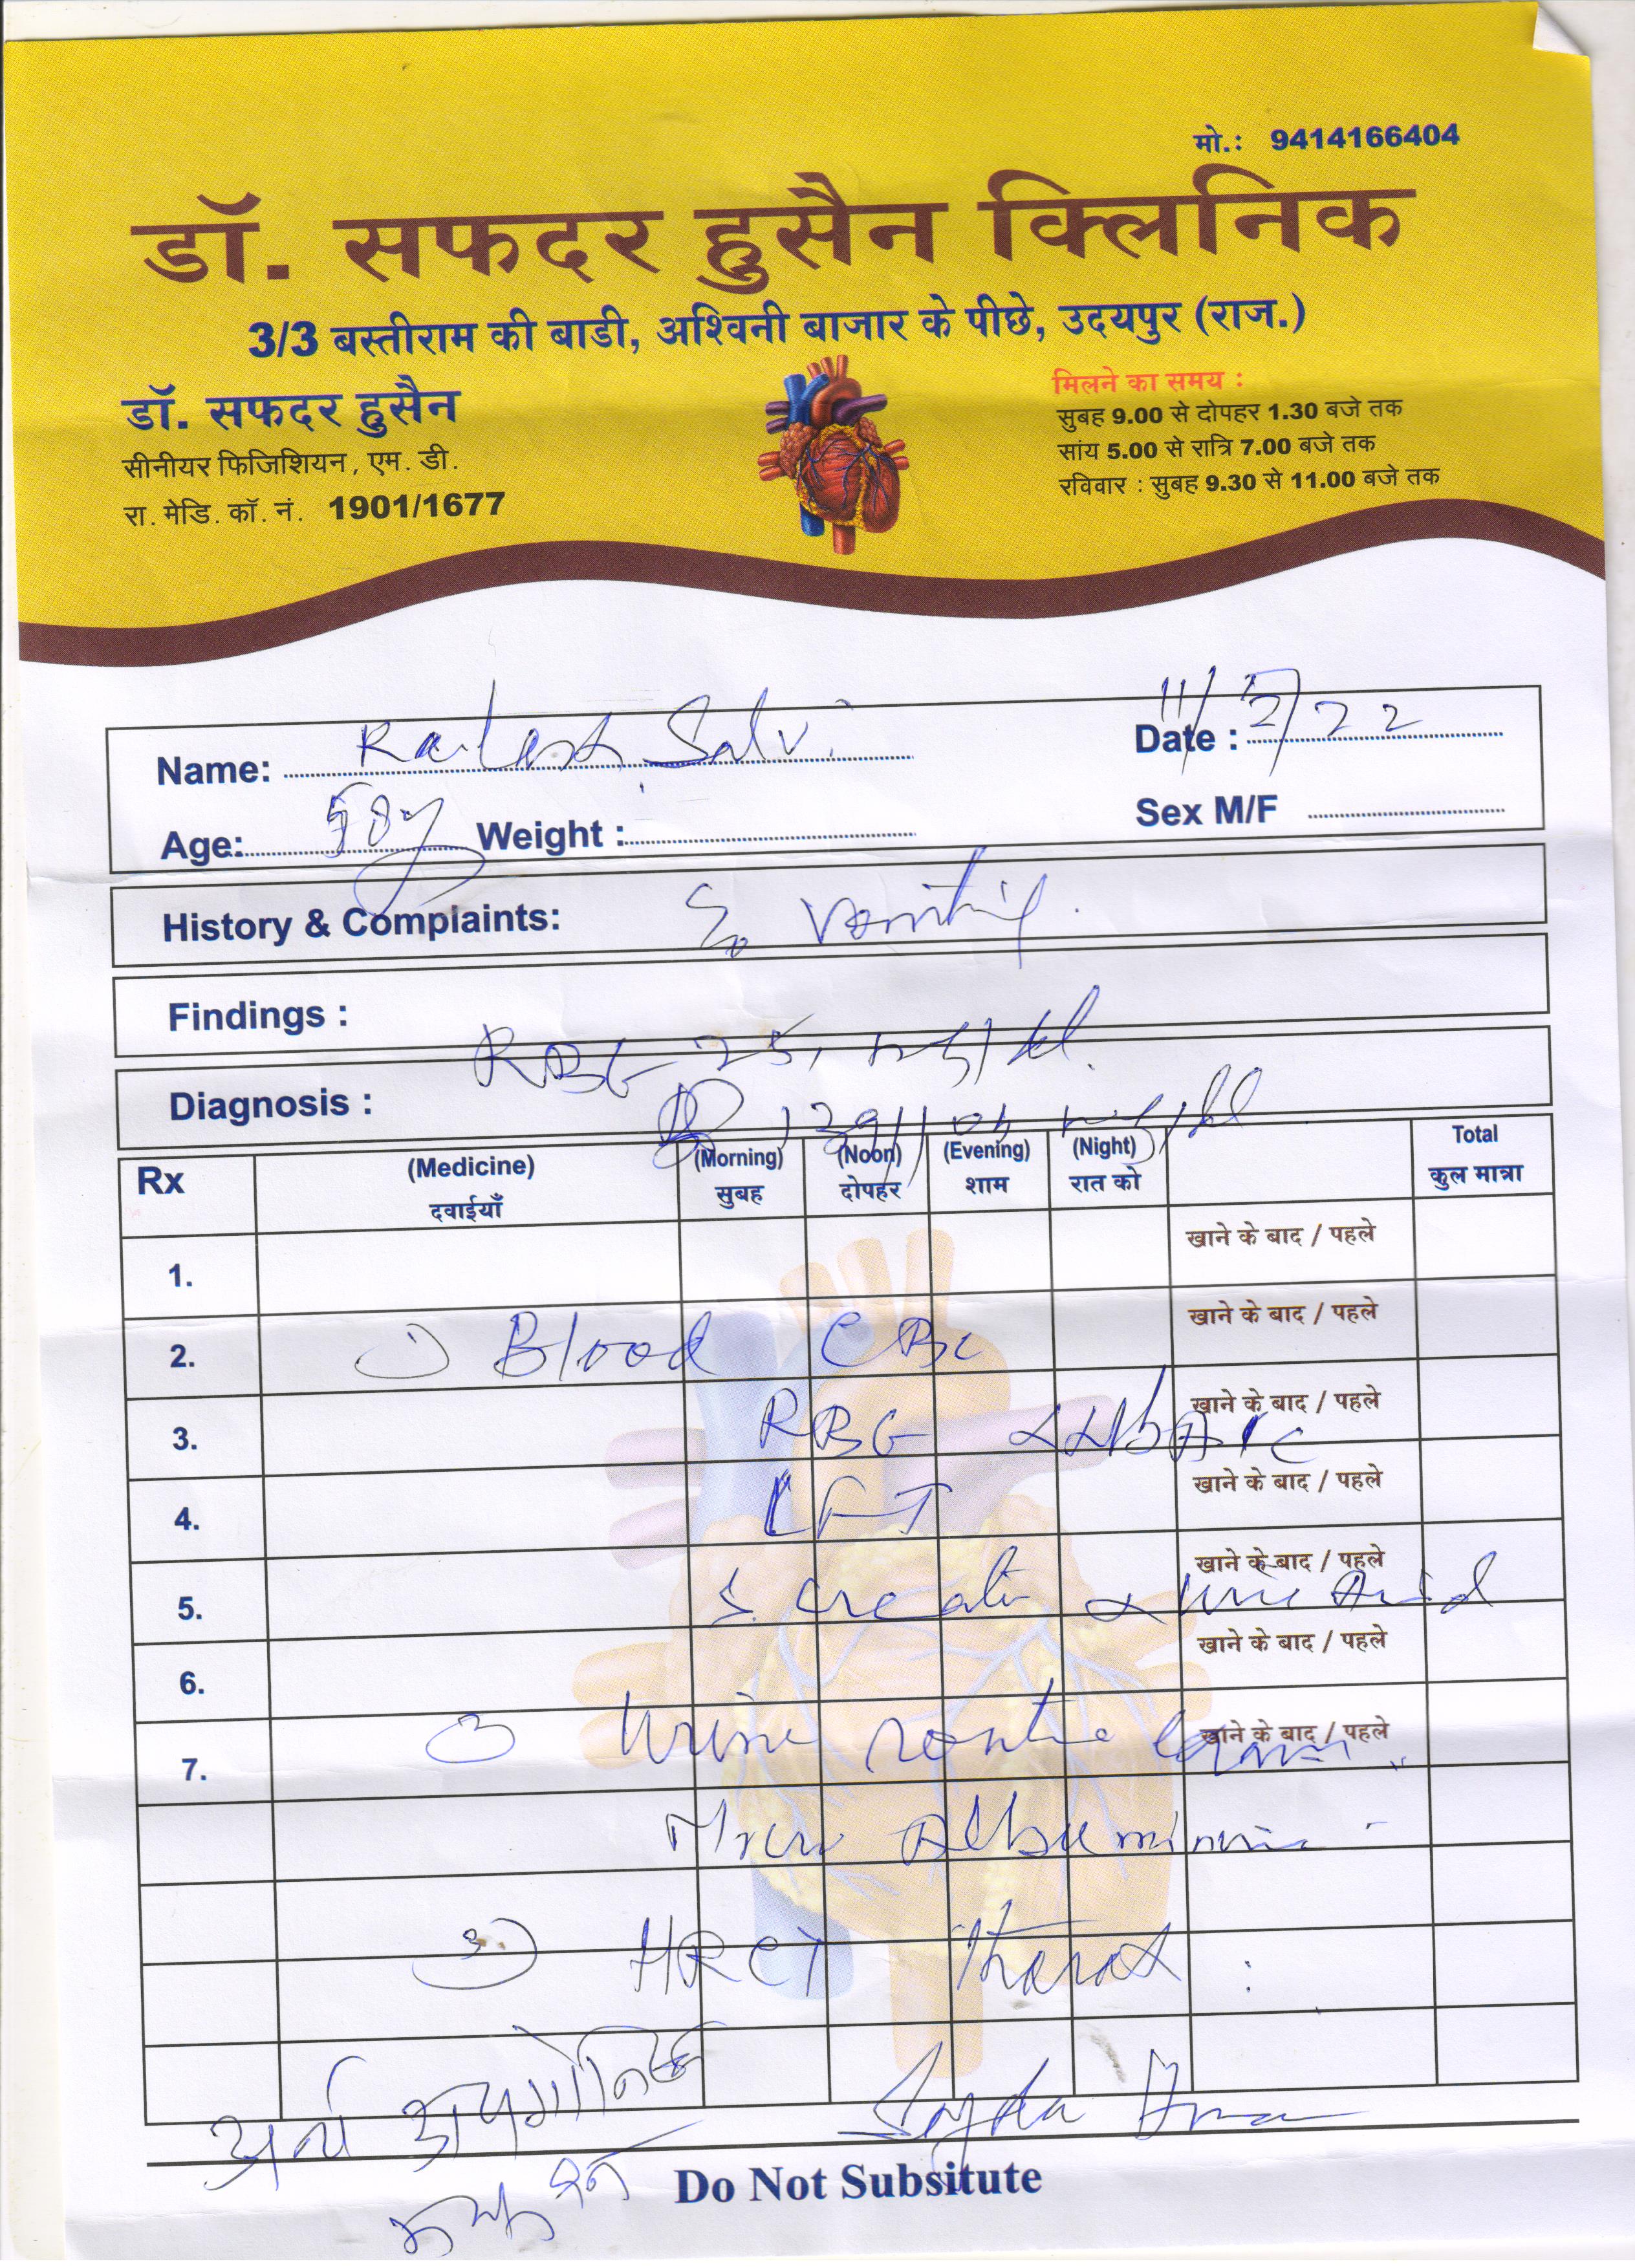 मो.: 9414166404
डॉ. सफदर हुसैन क्लिनिक
3/3 बस्तीराम की बाडी, अश्विनी बाजार के पीछे, उदयपुर (राज.)
डॉ. सफदर हुसैन
सीनीयर फिजिशियन, एम. डी.
रा. मेडि. कॉ. नं. 1901/1677
मिलने का समय :
सुबह 9.00 से दोपहर 1.30 बजे तक
सांय 5.00 से रात्रि 7.00 बजे तक
रविवार : सुबह 9.30 से 11.00 बजे तक
Name: Kailash Salvi
Date : 22
Age: 58y Weight :
Sex M/F
History & Complaints: vomiting
Findings :
RBG mg/dl
Diagnosis :
Rx (Medicine) (Morning) (Noon) (Evening) (Night) Total
दवाईयाँ सुबह दोपहर शाम रात को कुल मात्रा
1. खाने के बाद / पहले
2. 1) Blood CBC खाने के बाद / पहले
3. RBG & HbA1c खाने के बाद / पहले
4. LFT खाने के बाद / पहले
5. S. creatin & uric Acid खाने के बाद / पहले
6. खाने के बाद / पहले
7. 2) Urine routine exam खाने के बाद / पहले
Micro Albuminuria
3) HRCT Thorax
Do Not Subsitute